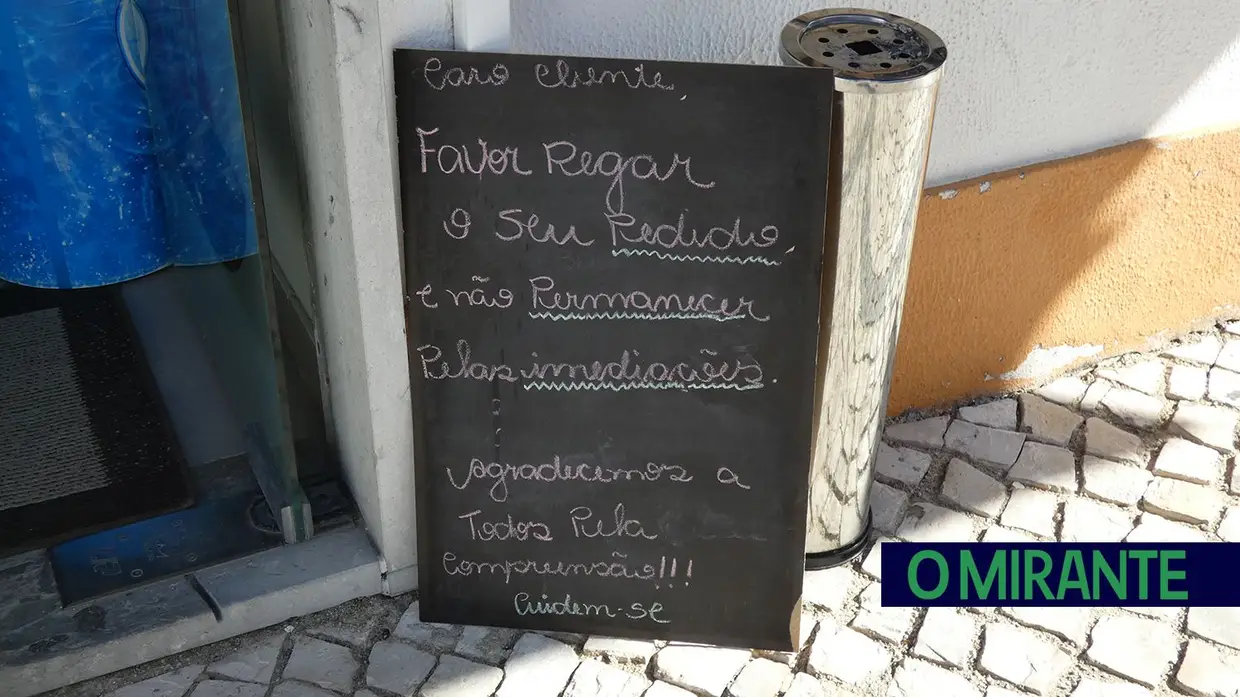 Caro cliente,
Favor Pegar
o seu Pedido,
e não Permanecer
Pelas imediações.
Agradecemos a
Todos Pela
Compreensão!!!
Cuidem-se
O MIRANTE